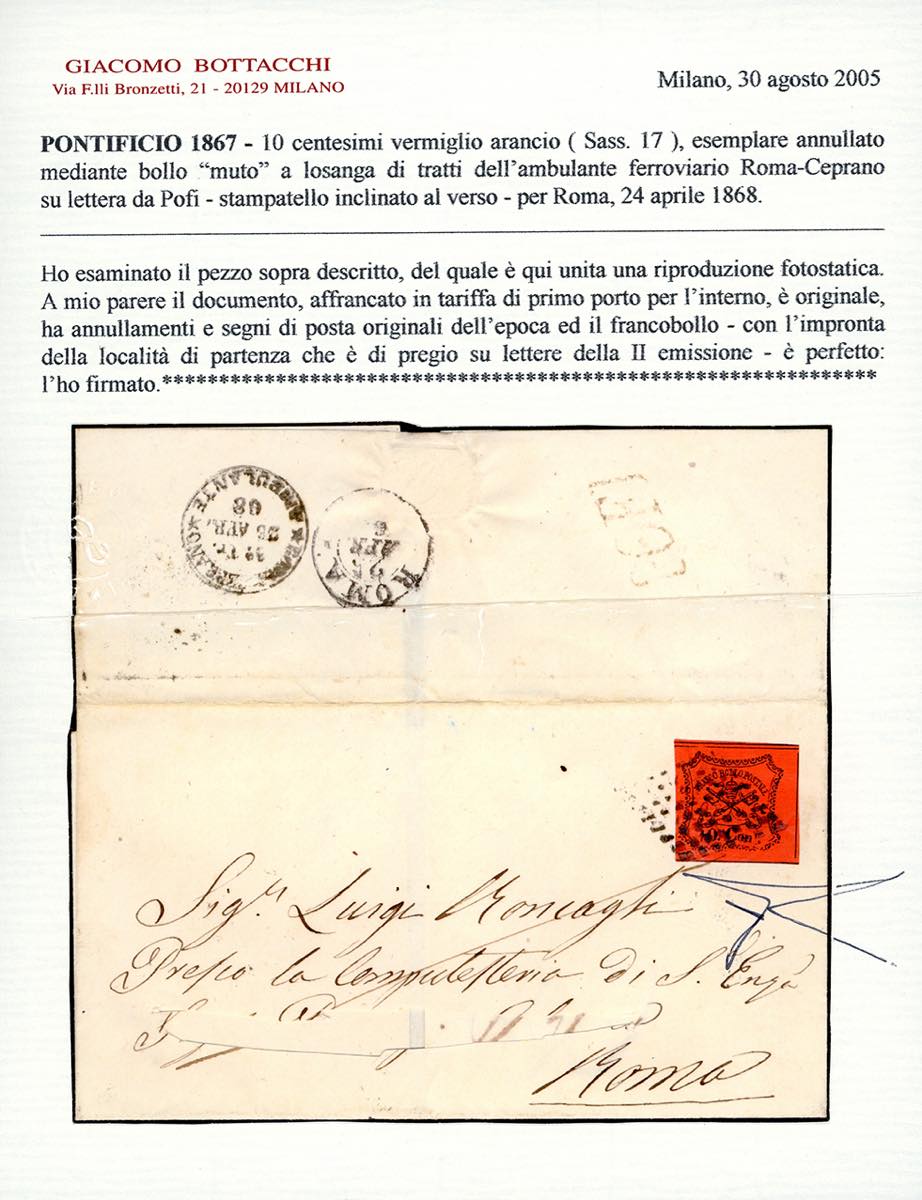 GIACOMO BOTTACCHI
Via F.lli Bronzetti, 21 - 20129 MILANO
Milano, 30 agosto 2005
PONTIFICIO 1867 - 10 centesimi vermiglio arancio ( Sass. 17 ), esemplare annullato
mediante bollo “muto” a losanga di tratti dell’ambulante ferroviario Roma-Ceprano
su lettera da Pofi - stampatello inclinato al verso - per Roma, 24 aprile 1868.
Ho esaminato il pezzo sopra descritto, del quale è qui unita una riproduzione fotostatica.
A mio parere il documento, affrancato in tariffa di primo porto per l’interno, è originale,
ha annullamenti e segni di posta originali dell’epoca ed il francobollo - con l’impronta
della località di partenza che è di pregio su lettere della II emissione - è perfetto:
l’ho firmato.******************************************************************
AMBULANTE
68
25 APR.
ROMA
25
APR
FRANCO BOLLO POSTALE
Sig.r Luigi Roncagli
Presso la Computisteria di S.
Roma